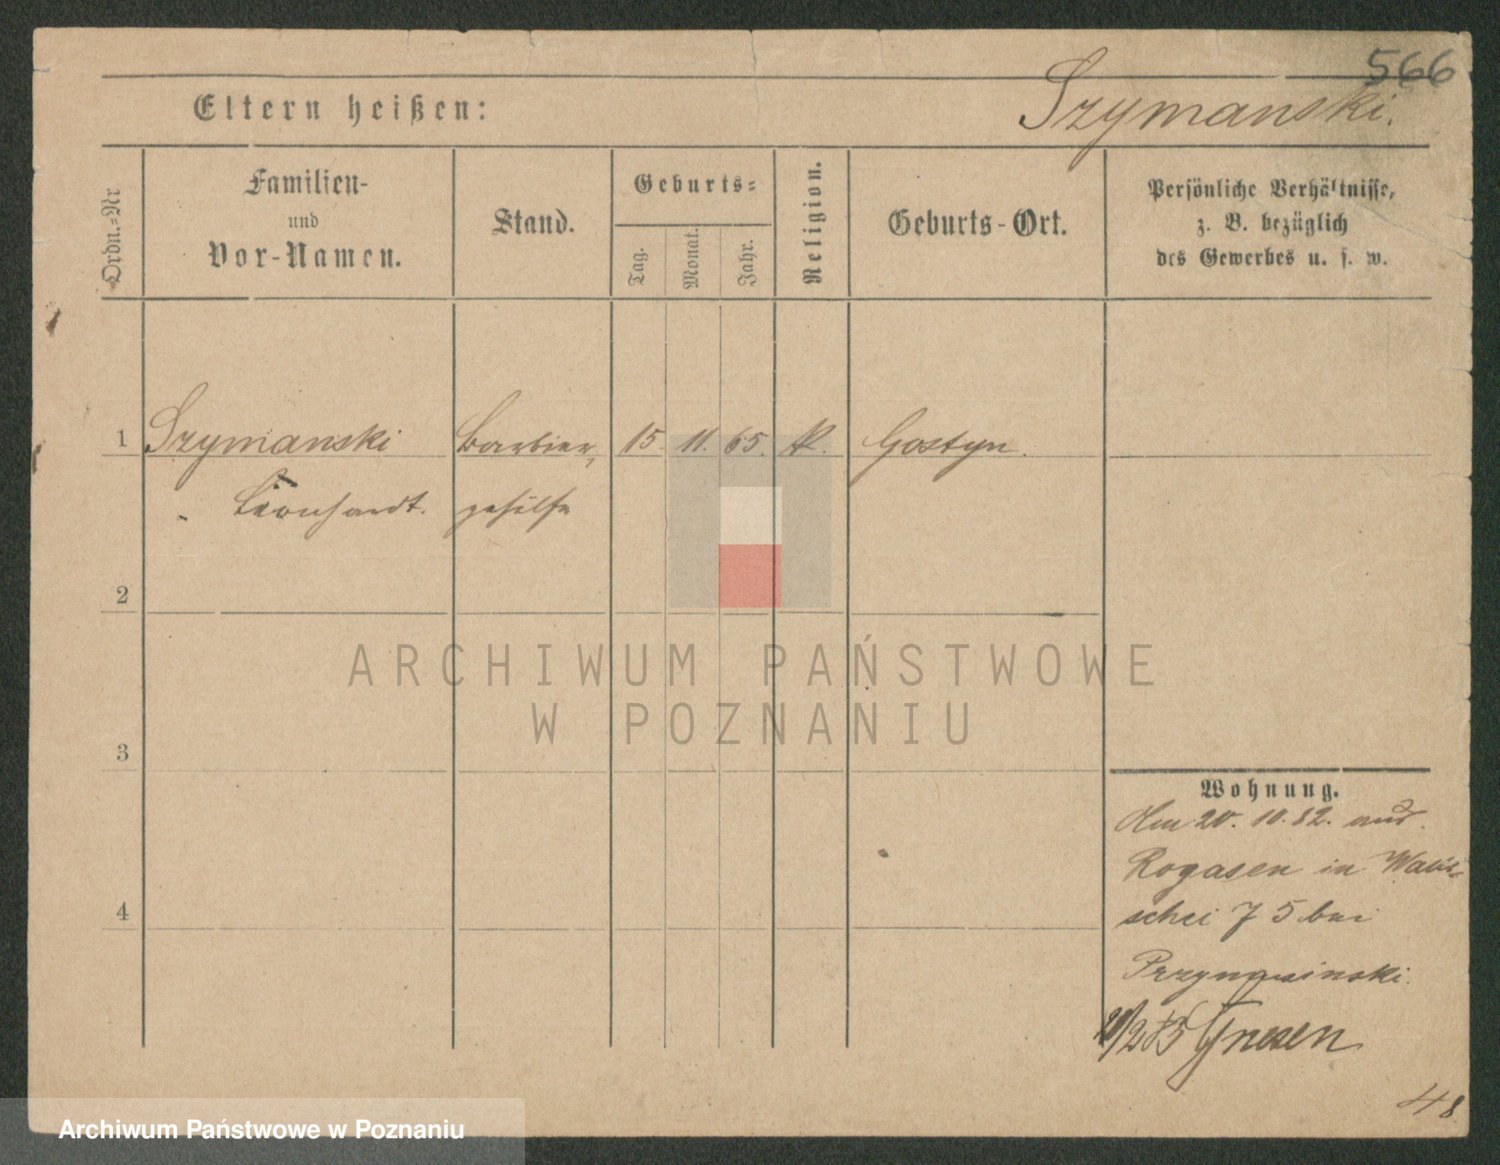 566
Eltern heißen:
Szymanski.
Ordn.-Nr
Familien-
und
Vor-Namen.
Stand.
Geburts-
Tag.
Monat.
Jahr.
Religion.
Geburts-Ort.
Persönliche Verhältnisse,
z. B. bezüglich
des Gewerbes u. s. w.
1 Szymanski Barbier 15. 11. 65. K. Gostyn.
Leonhardt. gehilfe
2
ARCHIWUM PAŃSTWOWE
W POZNANIU
3
4
Wohnung.
20. 10. 82. aus
Rogasen in Walli-
schei 75 bei
2/285 Gnesen
48
Archiwum Państwowe w Poznaniu